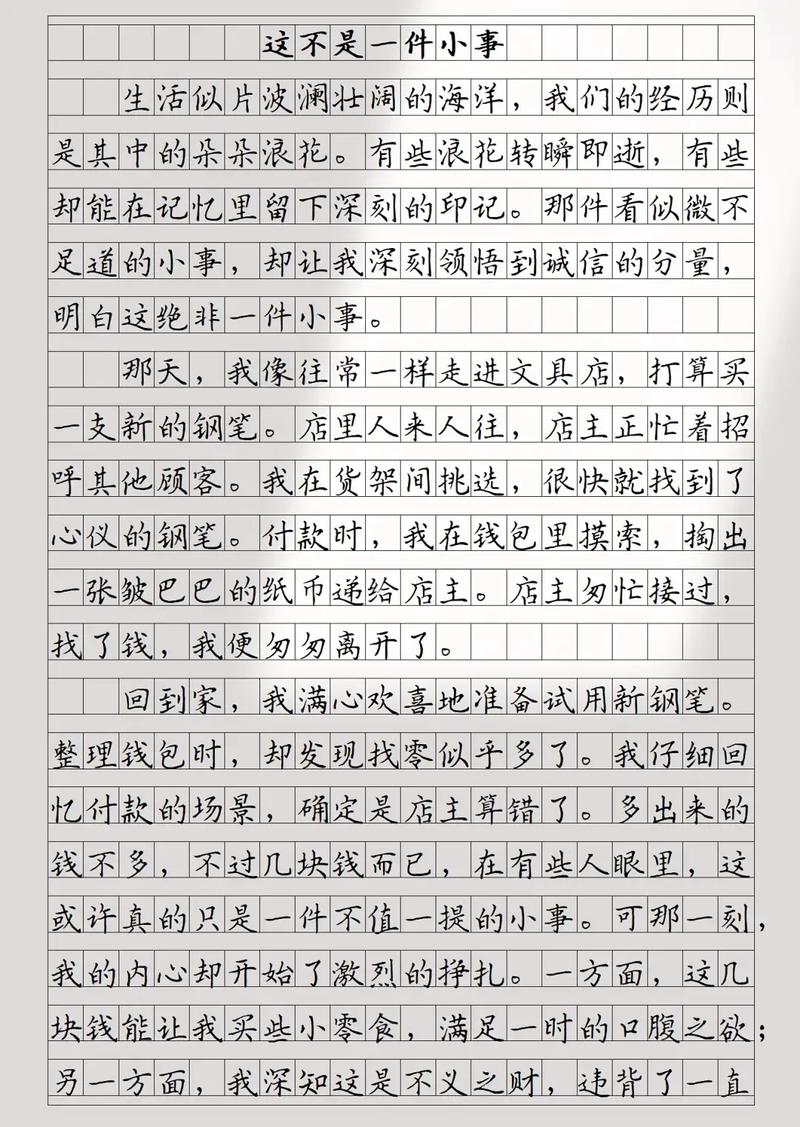 这不是一件小事
生活似片波澜壮阔的海洋，我们的经历则
是其中的朵朵浪花。有些浪花转瞬即逝，有些
却能在记忆里留下深刻的印记。那件看似微不
足道的小事，却让我深刻领悟到诚信的分量，
明白这绝非一件小事。
那天，我像往常一样走进文具店，打算买
一支新的钢笔。店里人来人往，店主正忙着招
呼其他顾客。我在货架间挑选，很快就找到了
心仪的钢笔。付款时，我在钱包里摸索，掏出
一张皱巴巴的纸币递给店主。店主匆忙接过，
找了钱，我便匆匆离开了。
回到家，我满心欢喜地准备试用新钢笔。
整理钱包时，却发现找零似乎多了。我仔细回
忆付款的场景，确定是店主算错了。多出来的
钱不多，不过几块钱而已，在有些人眼里，这
或许真的只是一件不值一提的小事。可那一刻，
我的内心却开始了激烈的挣扎。一方面，这几
块钱能让我买些小零食，满足一时的口腹之欲；
另一方面，我深知这是不义之财，违背了一直